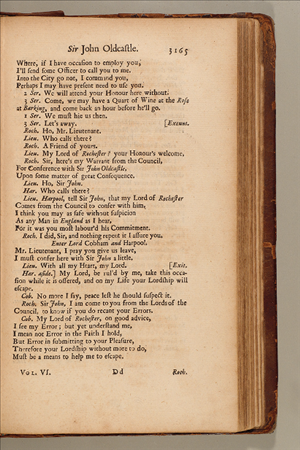 Sir John Oldcastle. 3165
Where, if I have occasion to employ you,
I'll send some Officer to call you to me.
Into the City go not, I command you,
Perhaps I may have present need to use you.
2 Ser. We will attend your Honour here without.
3 Ser. Come, we may have a Quart of Wine at the Rose
at Barking, and come back an hour before he'll go.
1 Ser. We must hie us then.
3 Ser. Let's away. [Exeunt.
Roch. Ho, Mr. Lieutenant.
Lieu. Who calls there?
Roch. A Friend of yours.
Lieu. My Lord of Rochester? your Honour's welcome.
Roch. Sir, here's my Warrant from the Council,
For Conference with Sir John Oldcastle,
Upon some matter of great Consequence.
Lieu. Ho, Sir John.
Har. Who calls there?
Lieu. Harpool, tell Sir John, that my Lord of Rochester
Comes from the Council to confer with him,
I think you may as safe without suspicion
As any Man in England as I hear,
For it was you most labour'd his Commitment.
Roch. I did, Sir, and nothing repent it I assure you.
Enter Lord Cobham and Harpool.
Mr. Lieutenant, I pray you give us leave,
I must confer here with Sir John a little.
Lieu. With all my Heart, my Lord. [Exit.
Har. aside.] My Lord, be rul'd by me, take this occa-
sion while it is offered, and on my Life your Lordship will
escape.
Cob. No more I say, peace lest he should suspect it.
Roch. Sir John, I am come to you from the Lords of the
Council, to know if you do recant your Errors.
Cob. My Lord of Rochester, on good advice,
I see my Error; but yet understand me,
I mean not Error in the Faith I hold,
But Error in submitting to your Pleasure,
Therefore your Lordship without more to do,
Must be a means to help me to escape.
VOL. VI. D d Roch.